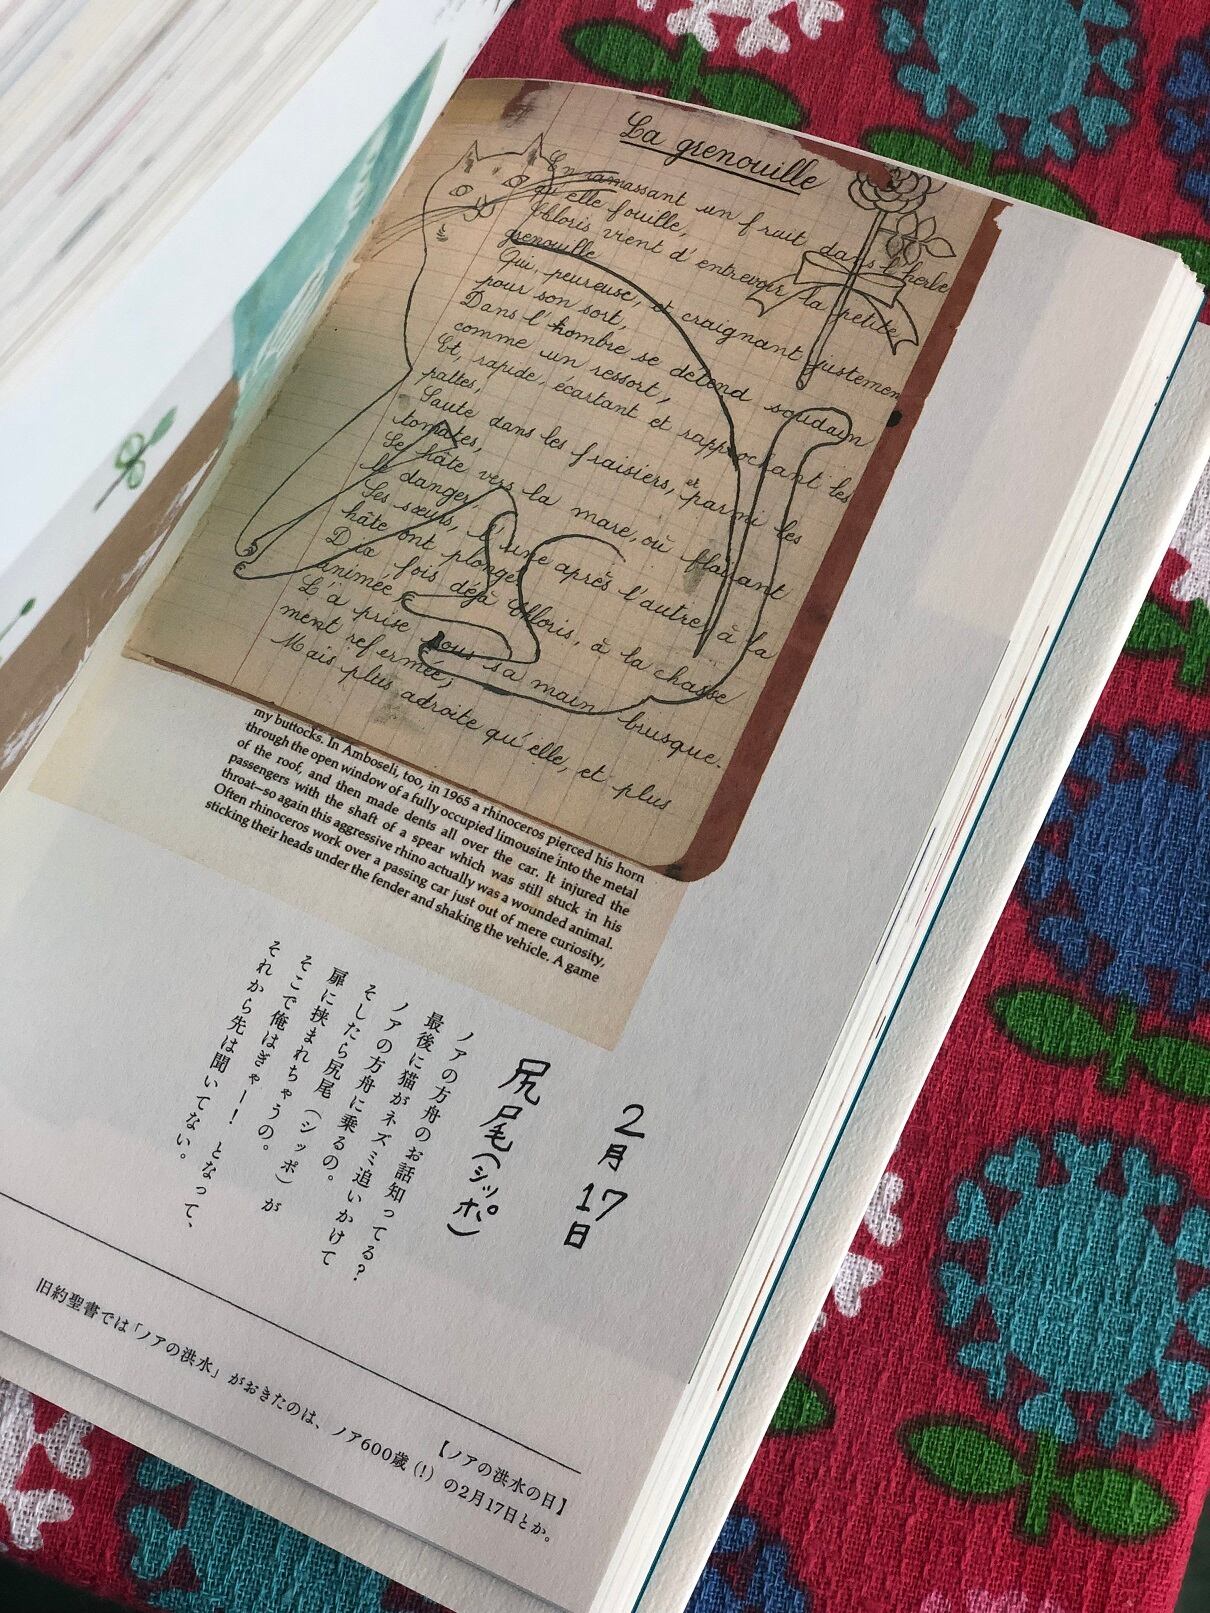 La grenouille
En ramassant un fruit dans l'herbe
qu'elle fouille,
Chloris vient d'entrevoir la petite
grenouille
Qui, peureuse, et craignant justemen
pour son sort,
Dans l'hombre se détend soudain
comme un ressort,
Et, rapide, écartant et rapprochant les
pattes,
Saute dans les fraisiers, et parmi les
tomates,
Se hâte vers la mare, où flairant
le danger,
Ses sœurs, l'une après l'autre, à la
hâte ont plongé
Dix fois déjà Chloris, à la chasse
animée,
L'a prise sous sa main brusque-
ment refermée;
Mais plus adroite qu'elle, et plus
my buttocks. In Amboseli, too, in 1965 a rhinoceros pierced his horn
through the open window of a fully occupied limousine into the metal
of the roof, and then made dents all over the car. It injured the
passengers with the shaft of a spear which was still stuck in his
throat—so again this aggressive rhino actually was a wounded animal.
Often rhinoceros work over a passing car just out of mere curiosity,
sticking their heads under the fender and shaking the vehicle. A game
2月17日
尻尾(シッポ)
ノアの方舟のお話知ってる?
最後に猫がネズミ追いかけて
ノアの方舟に乗るの。
そしたら尻尾(シッポ)が
扉に挟まれちゃうの。
そこで俺はぎゃー! となって、
それから先は聞いてない。
【ノアの洪水の日】
旧約聖書では「ノアの洪水」がおきたのは、ノア600歳(!)の2月17日とか。